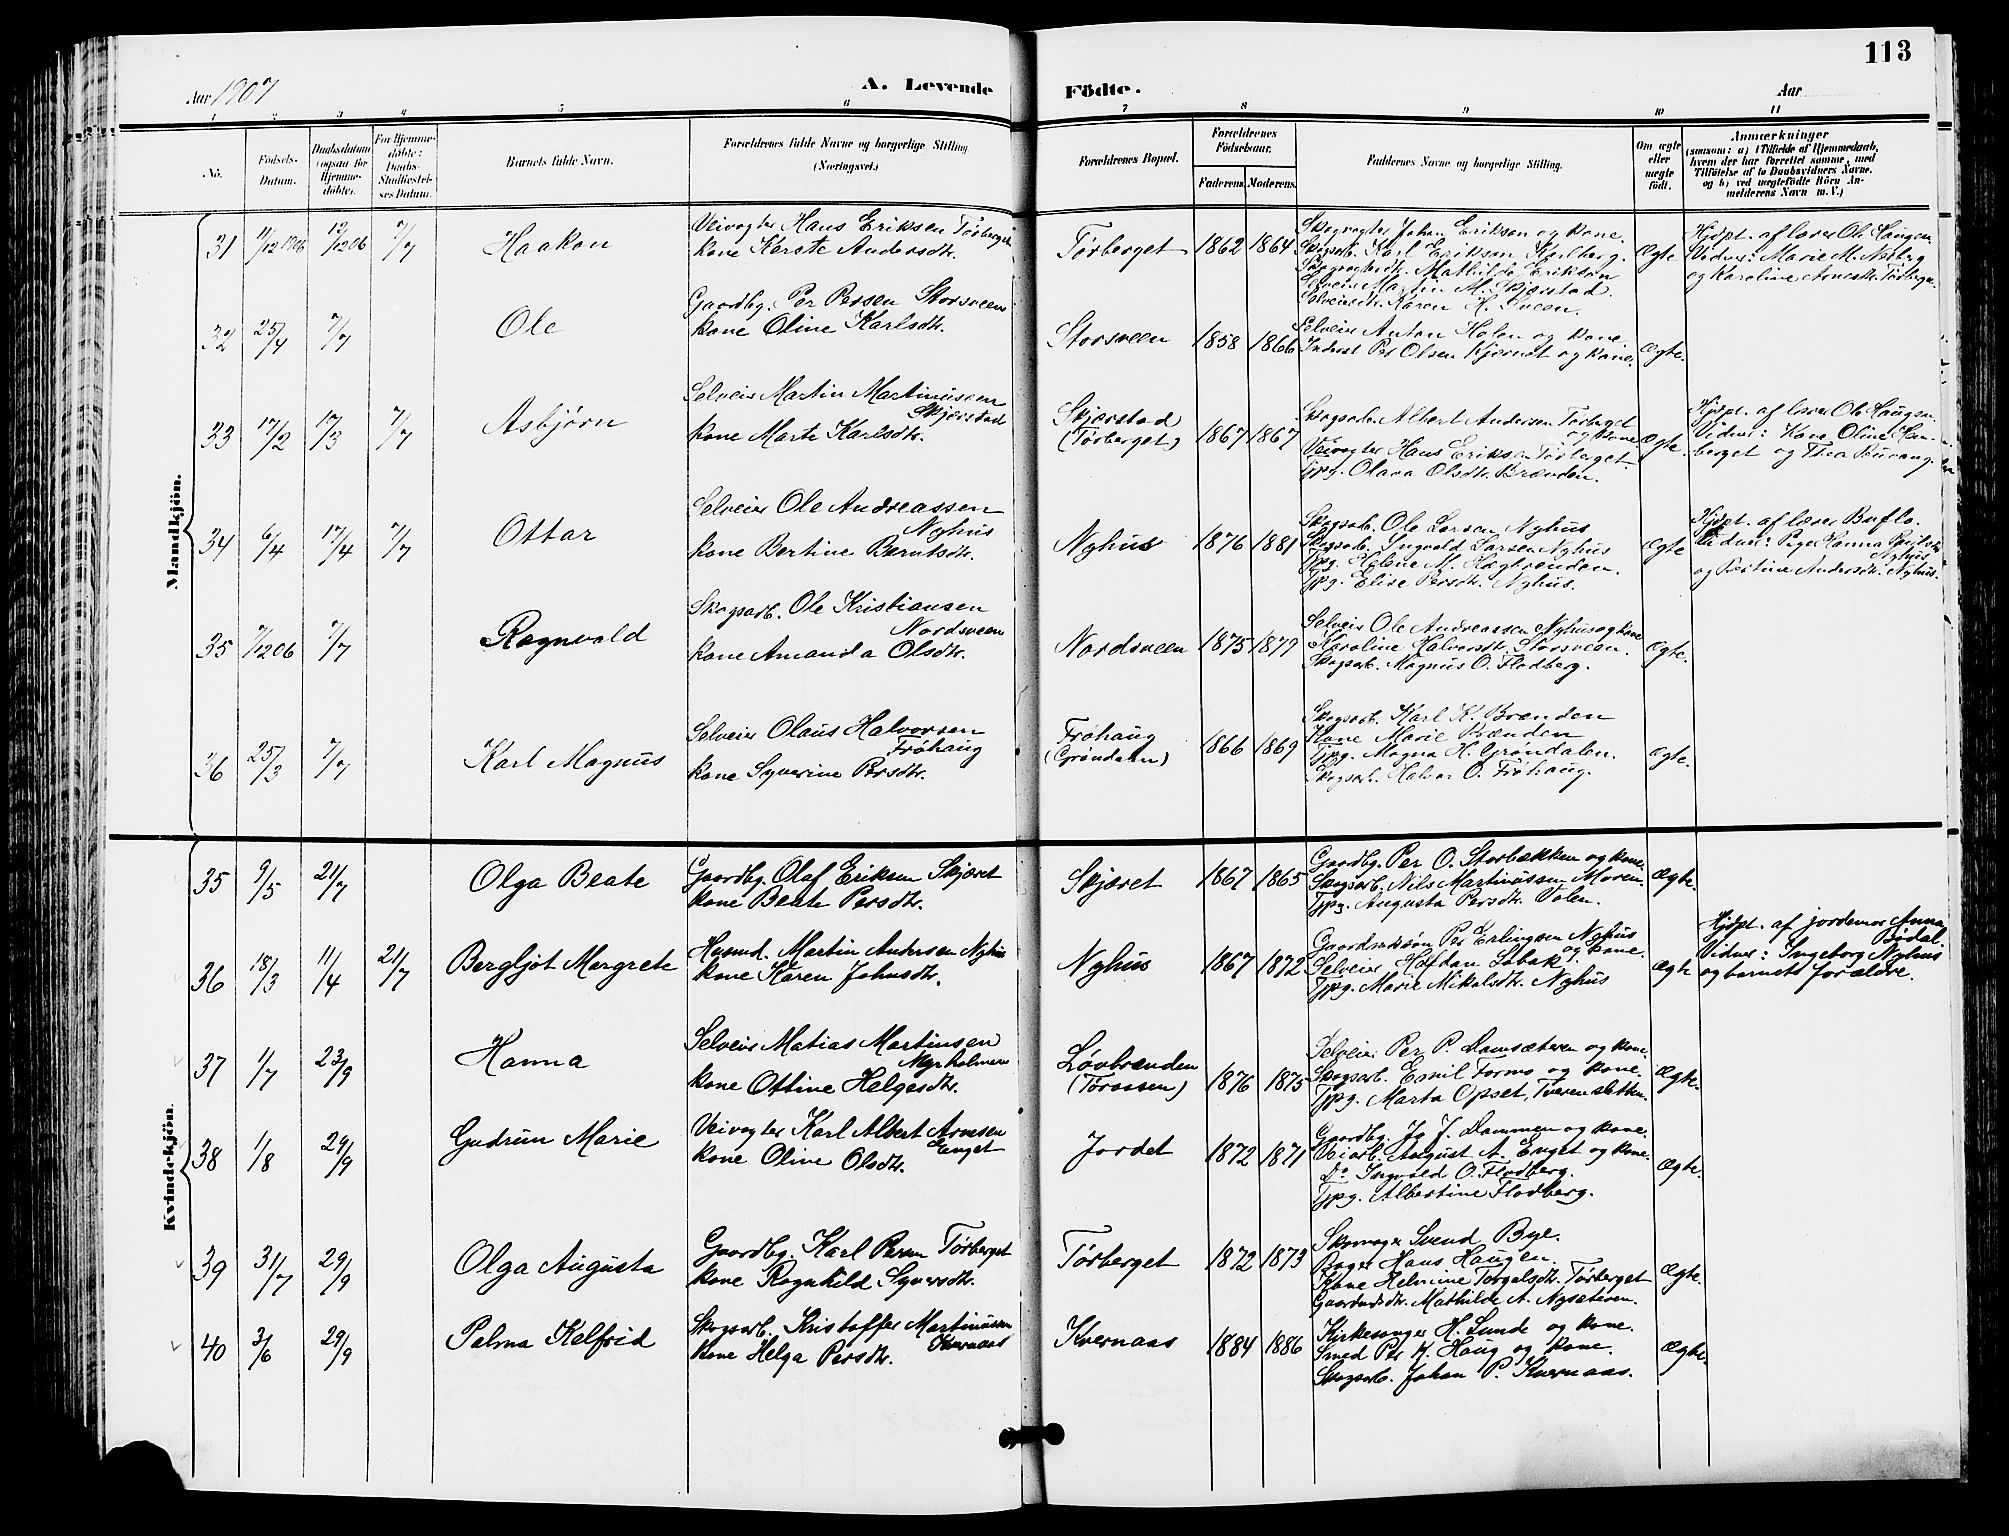 113
Aar 1907
A. Levende
Födte.
Aar
1 2 3 4 5 6 7 8 9 10 11
No.
Födsels-Datum.
Daabsdatum (ogsaa for Hjemmedöbte).
For Hjemmedöbte: Daabs-Stadfæstelses Datum.
Barnets fulde Navn.
Forældrenes fulde Navne og borgerlige Stilling (Næringsvei.)
Forældrenes Bopæl.
Forældrenes Födselsaar.
Faderens Moderens
Faddernes Navne og borgerlige Stilling.
Om ægte eller uægte födt.
Anmærkninger
(saasom: a) i Tilfælde af Hjemmedaab, hvem der har forrettet samme, med Tilföielse af to Daabsvidners Navne, og b) ved uægtefödte Börn Anmelderens Navn m. V.)
Mandkjön.
31 11/12 1906 12/12 06 7/7 Haakon
Veivogter Hans Eriksen Tørberget
kone Kerste Andersdtr.
Tørberget 1862 1864
Skogvogter Johan Eriksen og kone.
Skogsarb. Karl Eriksen Karlberg.
Skogvogterdtr. Mathilde Eriksen
Selveier Martin M. Skjærstad.
Selveierdtr. Karen H. Sveen.
Ægte
Hjdpt. af lærer Ole Haugen.
Vidner: Marie M. Nyberg
og Karoline Arnesdtr. Tørberget.
32 25/4 7/7 Ole
Gaardbg. Per Persen Storsveen
kone Oline Karlsdtr.
Storsveen 1858 1866
Selveier Anton Holen og kone.
Inderst Per Olsen Kjernet og kone.
Ægte.
33 17/2 17/3 7/7 Asbjørn
Selveier Martin Martinussen
Skjærstad
kone Marte Karlsdtr.
Skjærstad
(Tørberget) 1867 1867
Skogsarb. Albert Andersen Tørberget
og kone
Veivogter Hans Eriksen Tørberget
Tjpg. Olava Olsdtr. Brænden.
Ægte.
Hjdpt. af lærer Ole Haugen.
Vidner: Kone Oline Hanberget og Thea
34 6/4 17/4 7/7 Ottar
Selveier Ole Andreassen
Nyhus
kone Bertine Berntsdtr.
Nyhus 1876 1881
Skogsarb. Ole Larsen Nyhus
Skogsarb. Ingvald Larsen Nyhus
Tjpg. Helene M. Hægbrenden.
Tjpg. Elise Persdtr. Nyhus.
Ægte
Hjdpt. af lærer Buflo.
Vidner: Pige Hanna
Nyhus
og Bertine Andersdtr. Nyhus.
35 7/12 06 7/7 Ragnvald
Skogsarb. Ole Kristiansen
Nordsveen
kone Amanda Olsdtr.
Nordsveen 1875 1879
Selveier Ole Andreassen Nyhus og kone
Karoline Halvorsdtr. Storsveen.
Skogsarb. Magnus O. Flodberg.
Ægte.
36 25/3 7/7 Karl Magnus
Selveier Olaus Halvorsen
Frøhaug
kone Syverine Persdtr.
Frøhaug
(Grøndalen) 1866 1869
Skogsarb. Karl K. Brænden
Kone Marie Brænden
Tjpg. Magna H. Grøndalen.
Skogsarb. Halvor O. Frøhaug.
Ægte.
Kvindekjön.
35 9/5 21/7 Olga Beate
Gaardbg. Olaf Eriksen Skjæret
kone Beate Persdtr.
Skjæret 1867 1865
Gaardbg. Per O. Storbækken og kone.
Skogsarb. Nils Martinussen Moren.
Tjpg. Augusta Persdtr. Volen.
Ægte.
36 18/3 11/4 21/7 Bergljot Margrete
Husmd. Martin Andersen Nyhus
kone Karen Johnsdtr.
Nyhus 1867 1872
Gaardmdssøn Per Erlingsen Nyhus
Selveier Halfdan Løbak og kone.
Tjpg. Marie Mikalsdtr. Nyhus
Ægte
Hjdpt. af jordemor Anna
Bødal.
Vidner: Ingeborg Nyhus
og barnets forældre.
37 1/7 23/9 Hanna
Selveier Matias Martinsen
Myrholmen
kone Ottine Helgesdtr.
Løvbrænden
(Tøraasen) 1876 1875
Selveier Per P. Damsæteren og kone.
Skogsarb. Emil Formo og kone.
Tjpg. Marta Opset, Tverensletten.
Ægte.
38 1/8 29/9 Gudrun Marie
Veivogter Karl Albert Arnesen
Enget
kone Oline Olsdtr.
Jordet 1872 1871
Gaardbg. Jo J. Dammen og kone.
Veiarb. August A. Enget og kone.
Do Ingvald O. Flodberg.
Tjpg. Albertine Flodberg.
Ægte.
39 31/7 29/9 Olga Augusta
Gaardbg. Karl Persen Tørberget
kone Ragnhild Syversdtr.
Tørberget 1872 1873
Skomager Svend Bye.
Bager Hans Haugen.
Kone Helmine Torgalsdtr. Tørberget
Gaardmdsdtr. Mathilde A. Nysæteren.
Ægte.
40 3/6 29/9 Palma Kelfrid
Skogsarb. Kristoffer Martinussen
Kvernaas
kone Helga Persdtr.
Kvernaas 1884 1886
Kirkesanger H. Lunde og kone.
Smed Per K. Haug og kone.
Skogsarb. Johan P. Kvernaas.
Ægte.